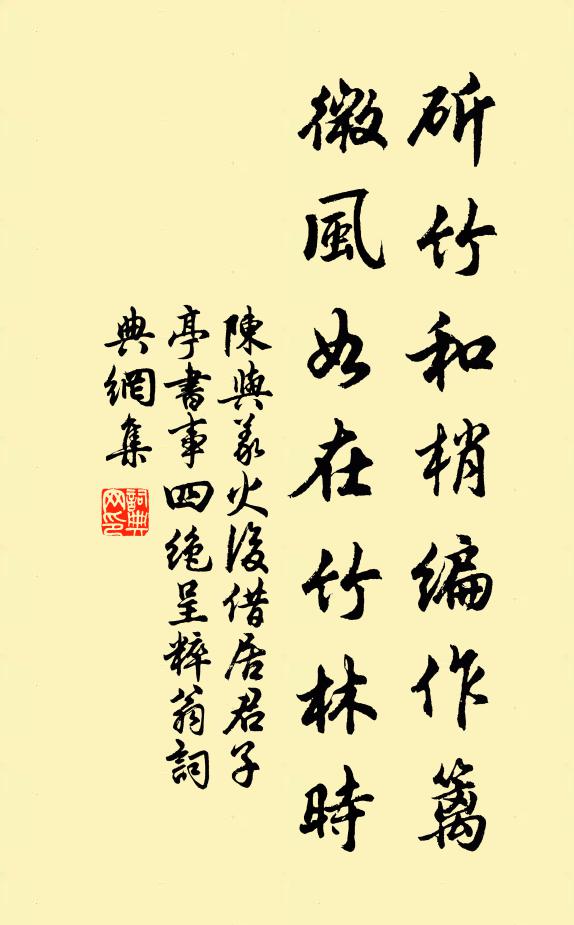 斫竹和梢編作篱
微風如在竹林時
陳與義火後借居君子
亭書事四絶呈粹翁詞
典網集
詞典网印